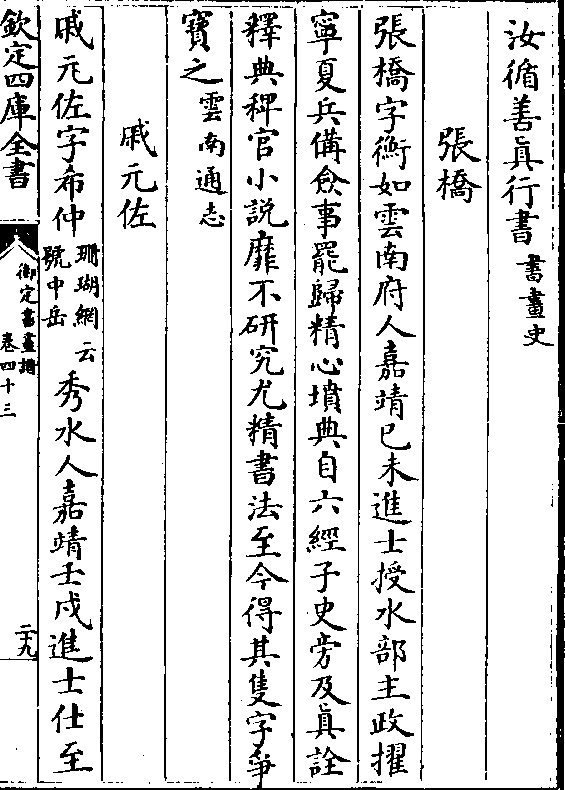 汝循善真行書書畫史
張橋
張橋字衡如雲南府人嘉靖已未進士授水部主政擢
寧夏兵備僉事罷歸精心墳典自六經子史旁及真詮
釋典稗官小説靡不研究尤精書法至今得其隻字爭
寶之雲南通志
戚元佐
戚元佐字希仲珊瑚網云號中岳秀水人嘉靖壬戌進士仕至
欽定四庫全書
御定書畫譜
卷四十三
二十九